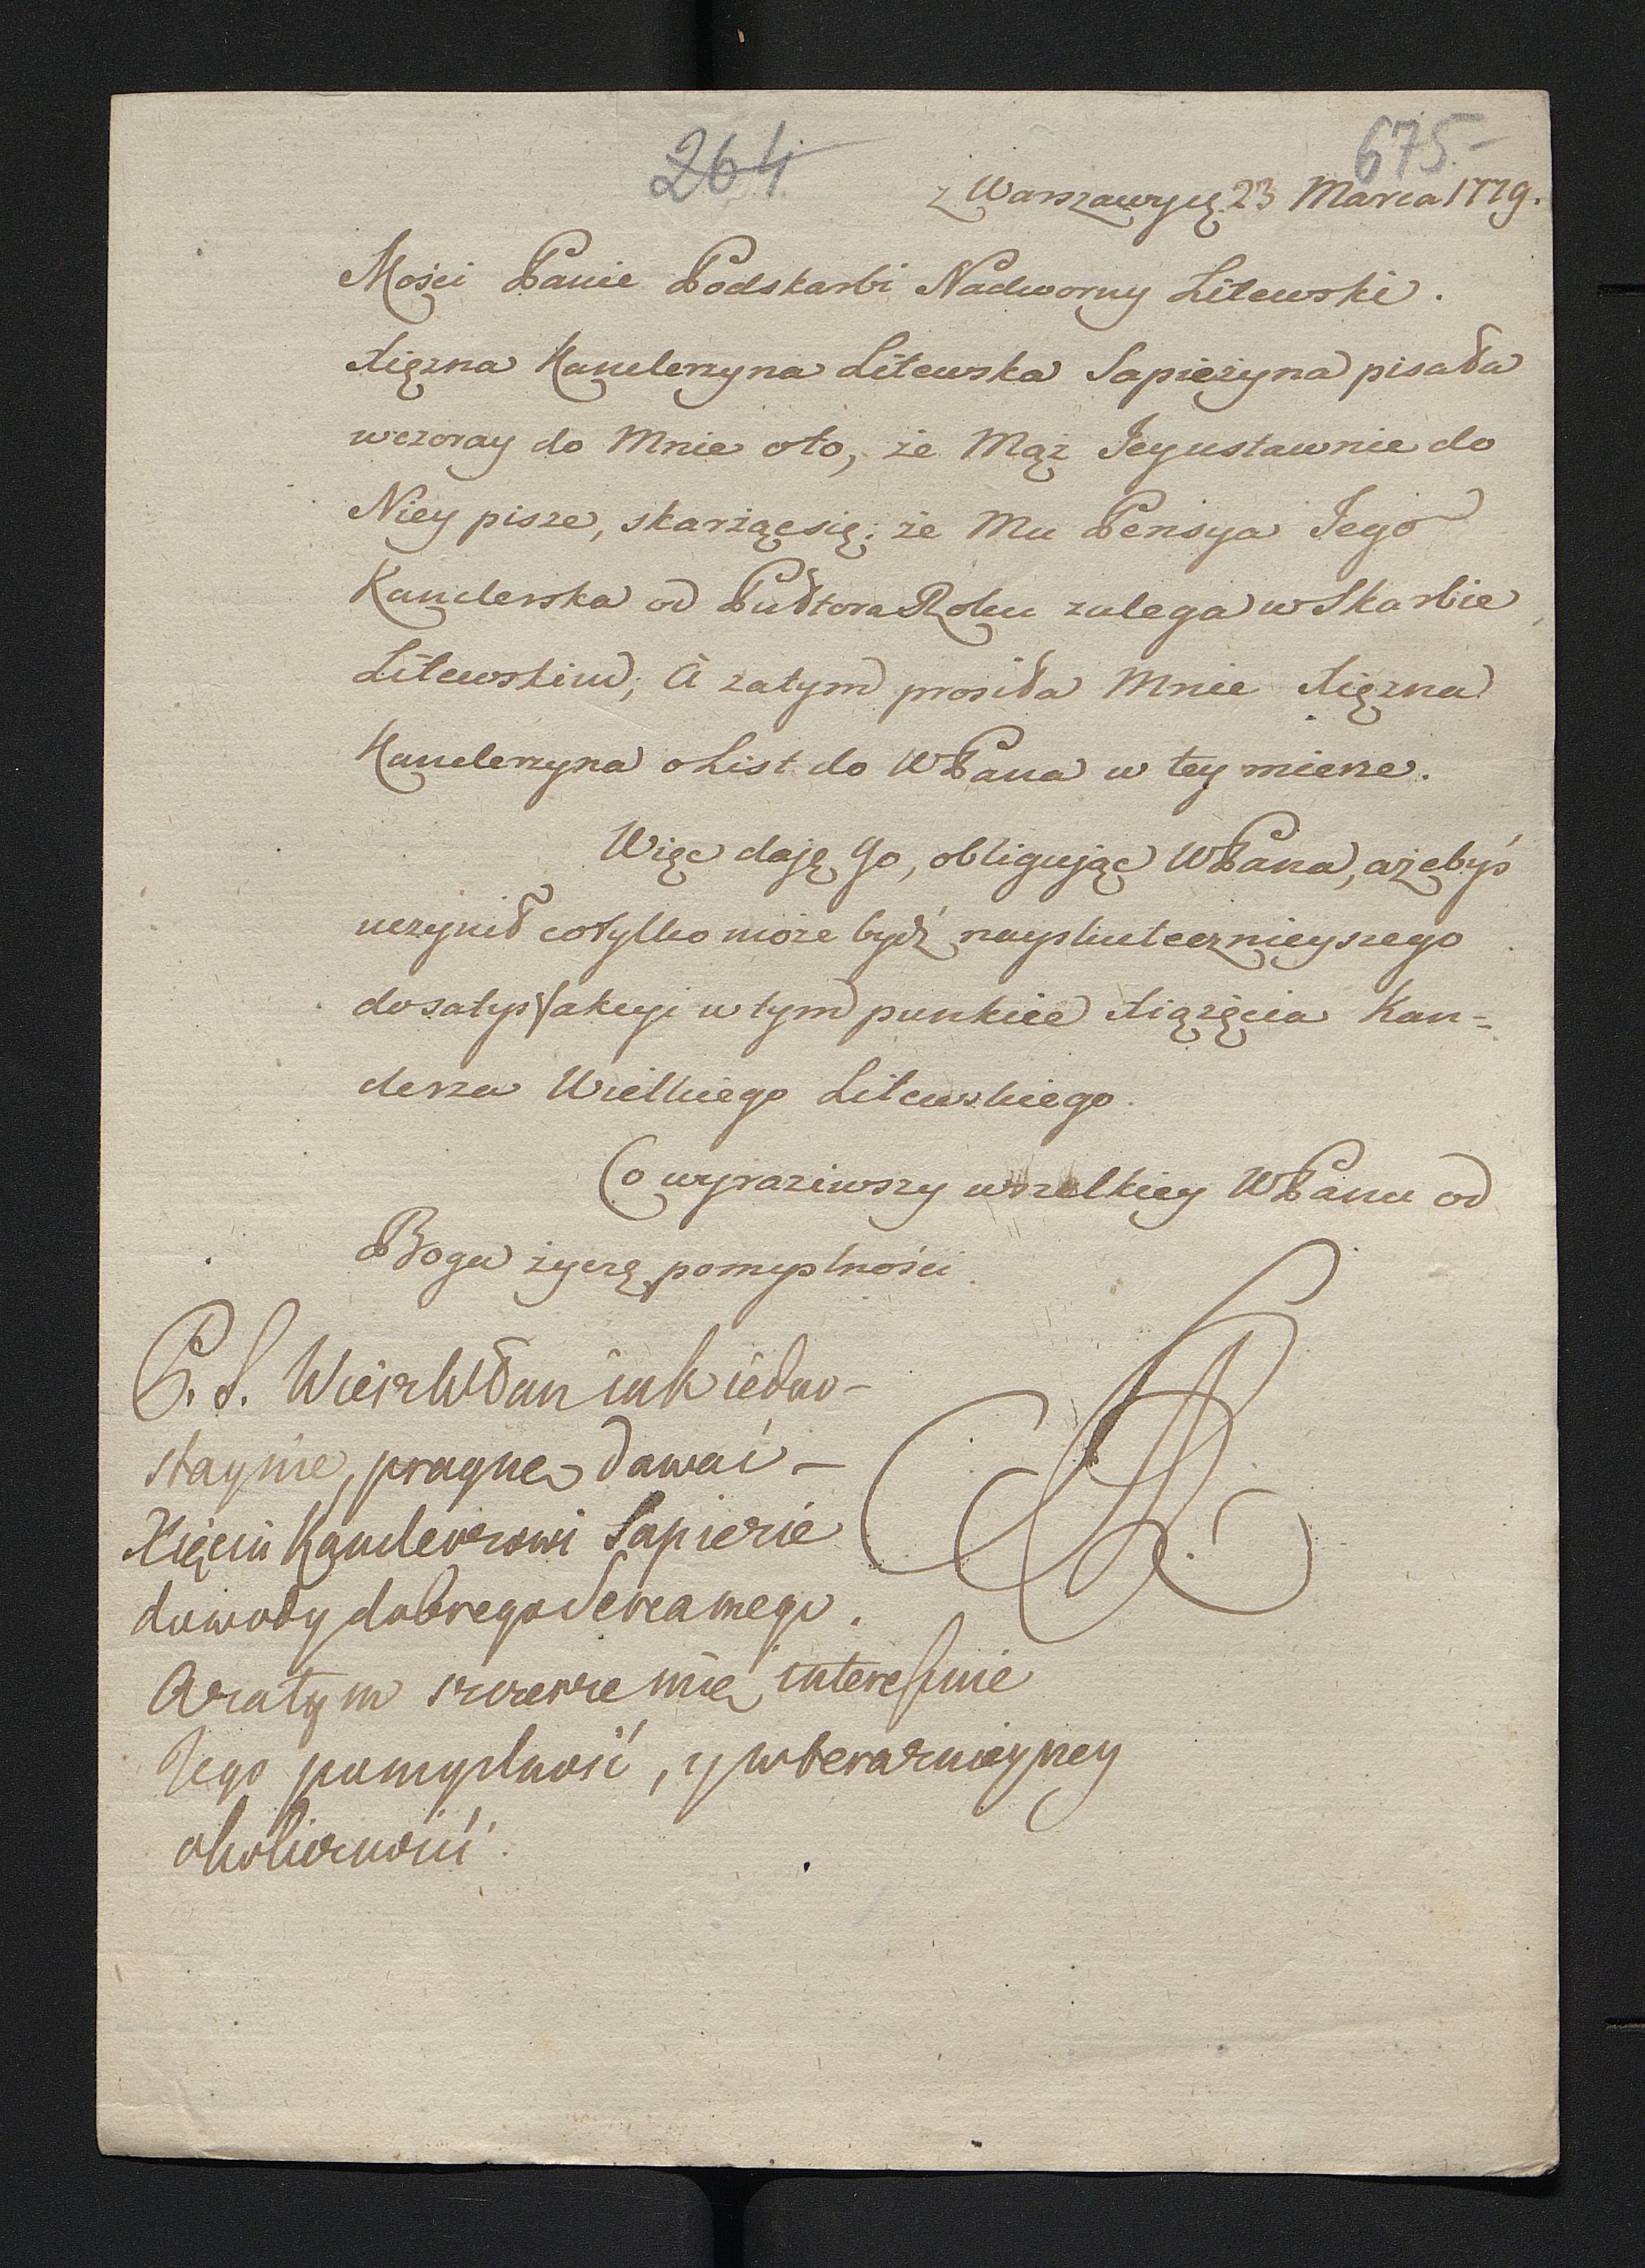 264
675-
z Warszawy d. 23 Marca 1779.
Mości Panie Podskarbi Nadworny Litewski.
Xiężna Kanclerzyna Litewska Sapieżyna pisała
wczoray do Mnie oto, że Mąż Jey ustawnie do
Niey pisze, skarżąc się; że Mu Pensya Jego
Kanclerska od Pułtora Roku zalega w Skarbie
Litewskim; A zatym prosiła Mnie Xiężna
Kanclerzyna o List do WPana w tey mierze.
Więc daję Go, obligując WPana, ażebyś
uczynił co tylko może bydź nayskutecznieyszego
do satysfakcyi w tym punkcie Xiążęcia Kan=
clerza Wielkiego Litewskiego.
Co wyraziwszy wszelkiey WPanu od
Boga życzę pomyślności.
P.S. Wiesz WPan iak iedno-
staynie, pragnę dawać -
Xięciu Kanclerzowi Sapieżie
dowody dobrego Serca mego.
A zatym szczerze mię interessuie
Jego pomyślność, y w terażnieyszey
okoliczności.
SAR.